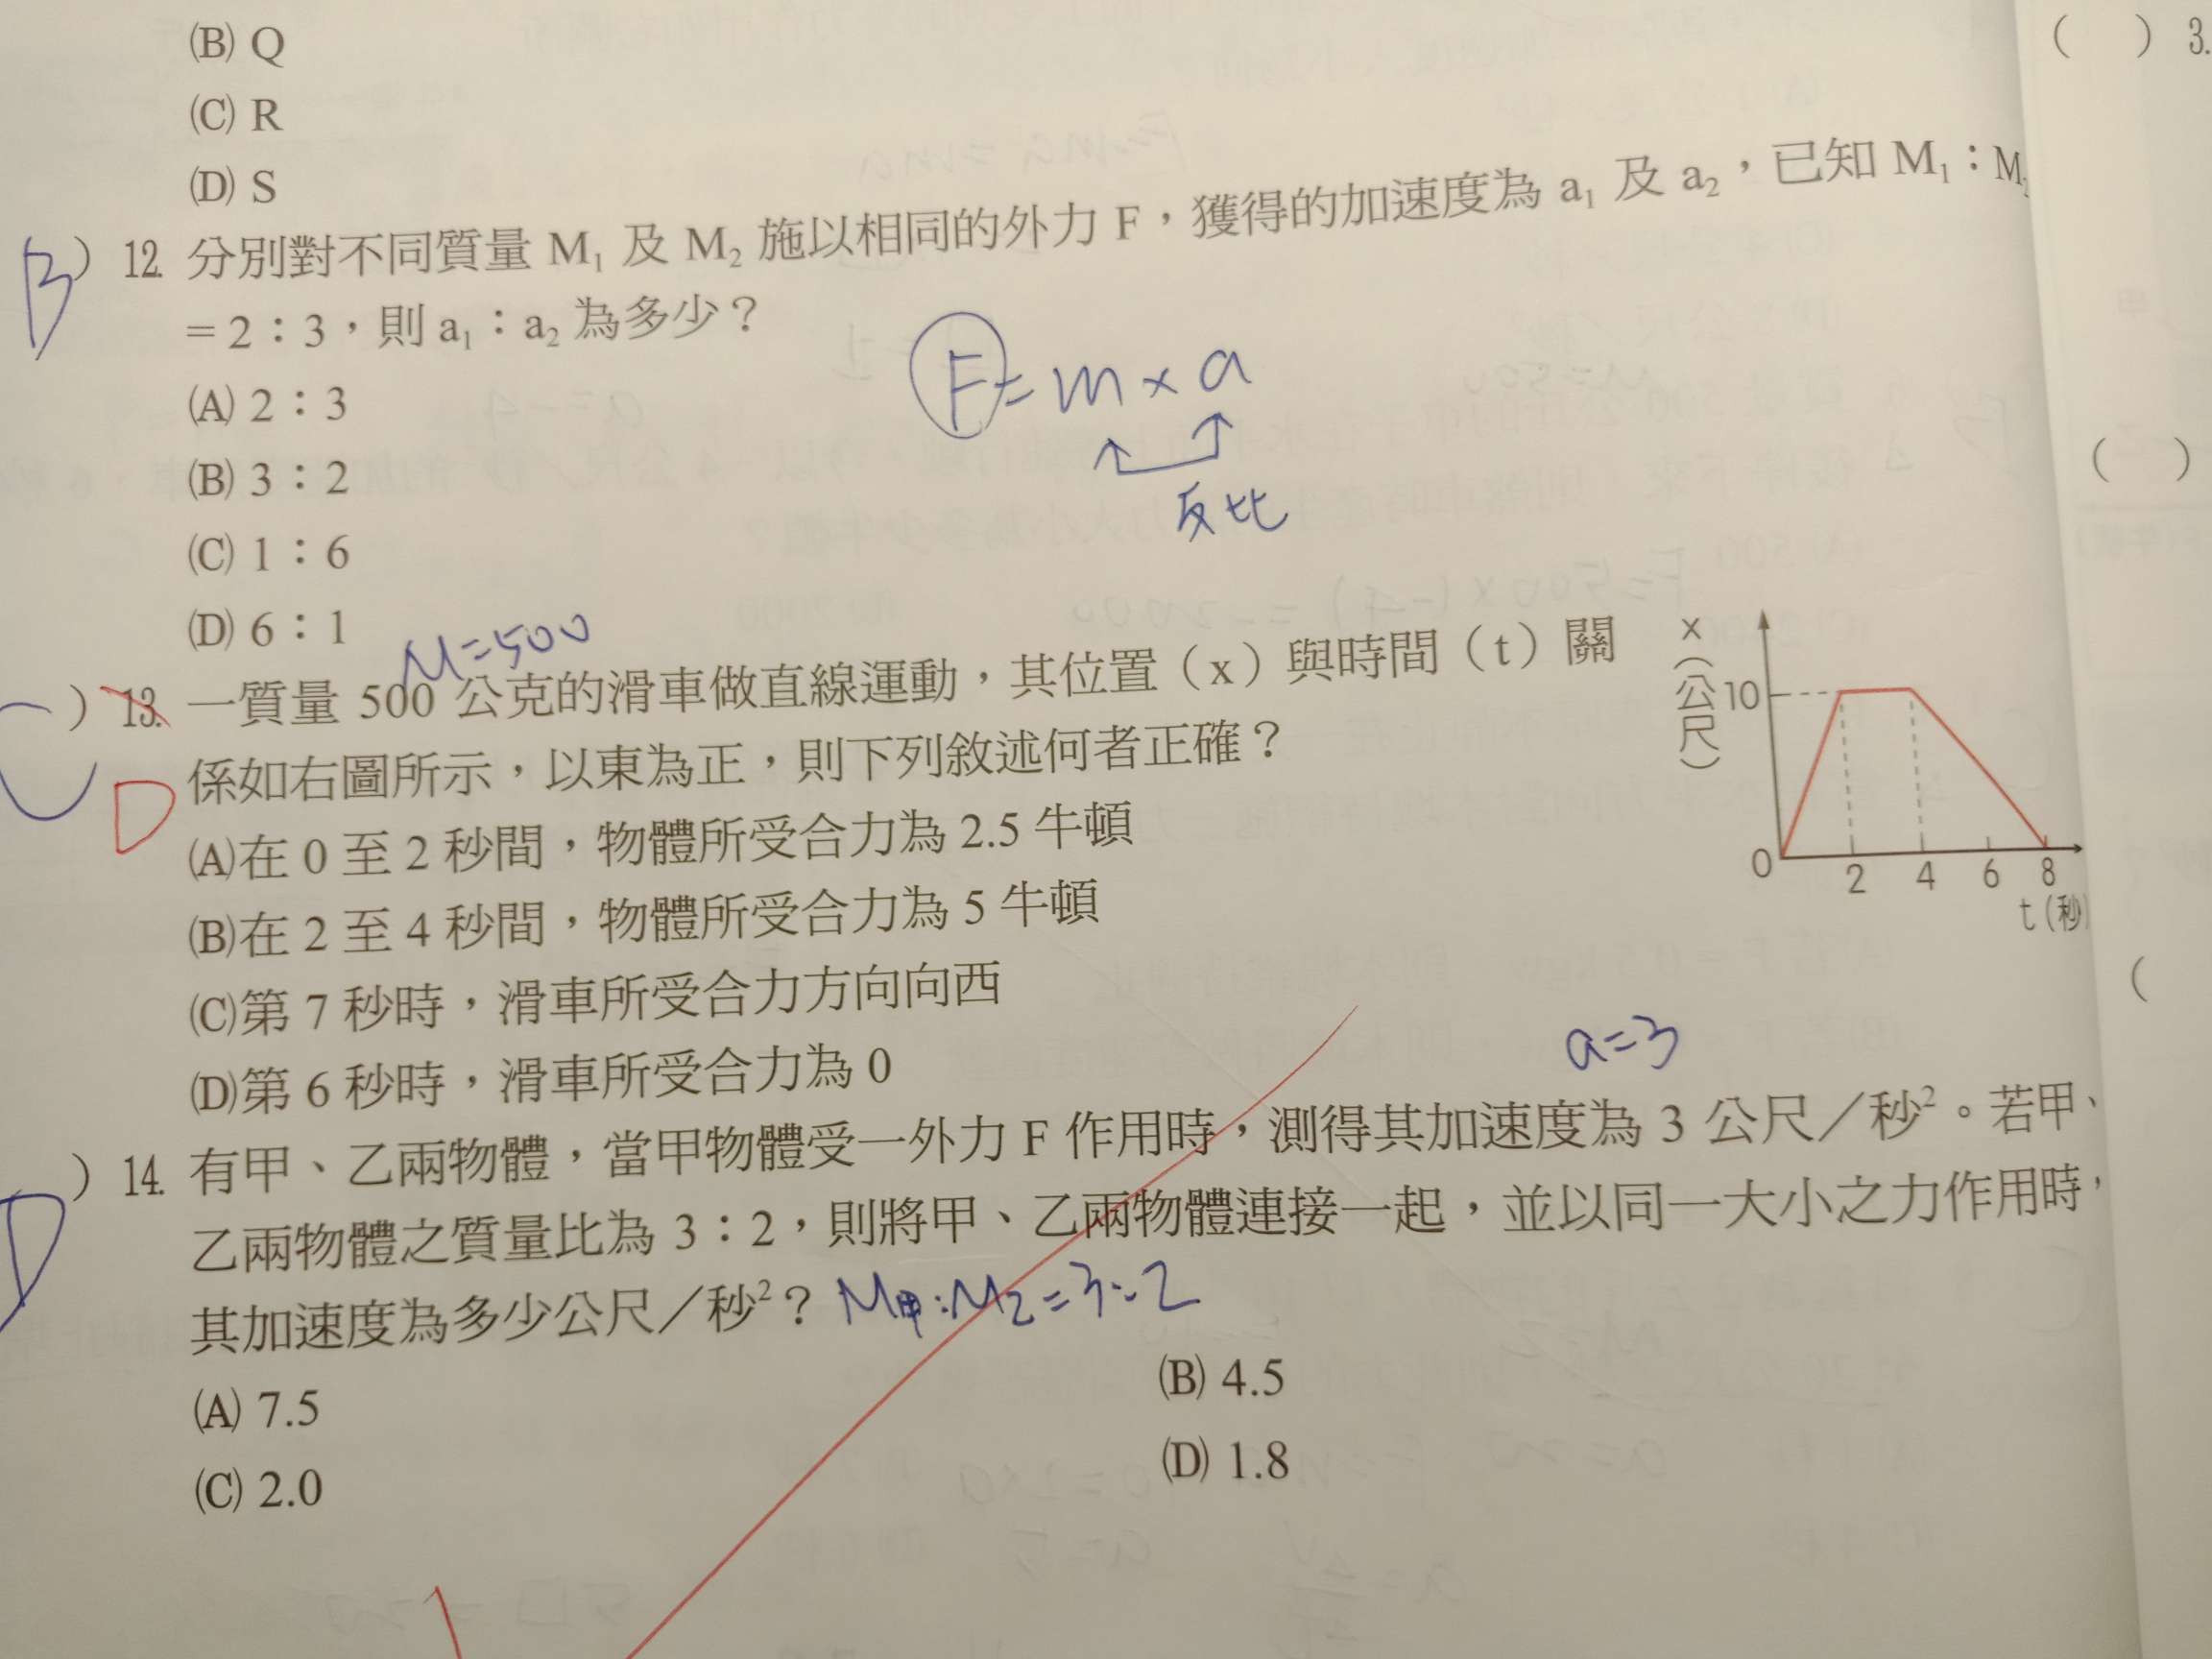 (B) Q
(C) R
(D) S
( ) 3.
B ) 12. 分別對不同質量 M₁ 及 M₂ 施以相同的外力 F，獲得的加速度為 a₁ 及 a₂，已知 M₁：M₂
＝2：3，則 a₁：a₂ 為多少？
F=m×a
反比
(A) 2：3
(B) 3：2
(C) 1：6
(D) 6：1
M=500
C ) 13. 一質量 500 公克的滑車做直線運動，其位置（x）與時間（t）關
D 係如右圖所示，以東為正，則下列敘述何者正確？
(A)在 0 至 2 秒間，物體所受合力為 2.5 牛頓
(B)在 2 至 4 秒間，物體所受合力為 5 牛頓
(C)第 7 秒時，滑車所受合力方向向西
(D)第 6 秒時，滑車所受合力為 0
x（公尺）
10
0 2 4 6 8
t（秒）
a=3
D ) 14. 有甲、乙兩物體，當甲物體受一外力 F 作用時，測得其加速度為 3 公尺／秒²。若甲、
乙兩物體之質量比為 3：2，則將甲、乙兩物體連接一起，並以同一大小之力作用時，
其加速度為多少公尺／秒²？ M甲:M乙=3:2
(A) 7.5
(B) 4.5
(C) 2.0
(D) 1.8
( )
(